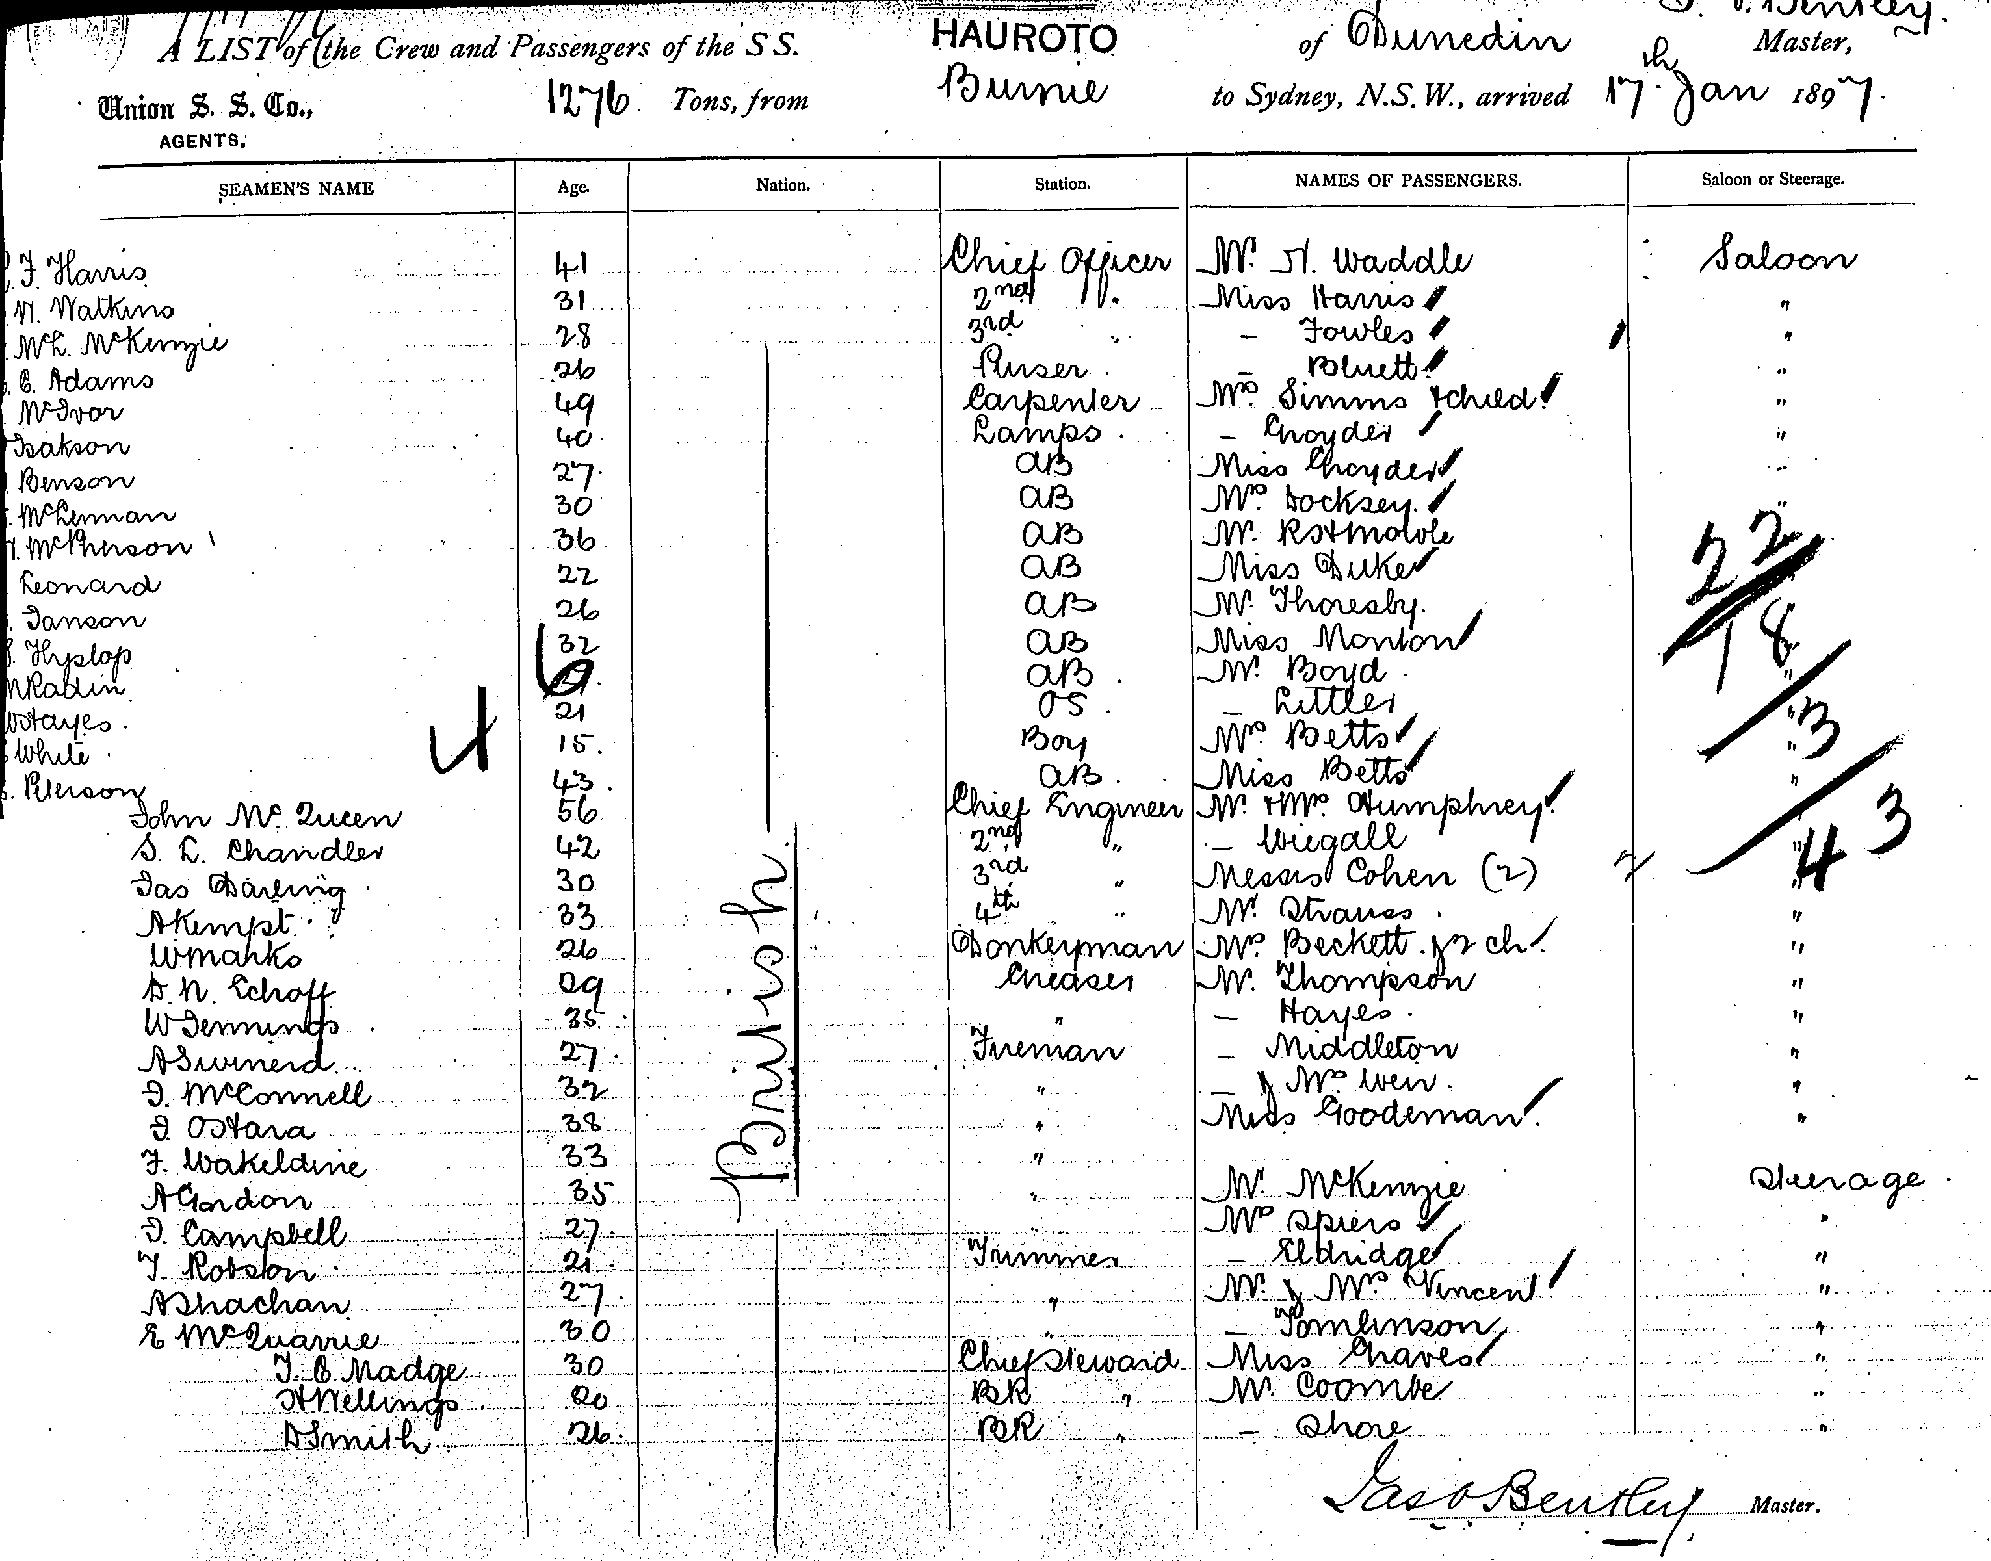 A LIST of the Crew and Passengers of the S S. HAUROTO of Dunedin Bentley. Master,
Union S. S. Co., AGENTS. 1276 Tons, from Burnie to Sydney, N.S.W., arrived 17th Jan 1897.
SEAMEN'S NAME Age. Nation. Station. NAMES OF PASSENGERS. Saloon or Steerage.
F Harris 41 Chief Officer Mr. H. Waddle Saloon
Watkins 31 2nd " Miss Harris "
McL. McKenzie 28 3rd " – Fowles "
C. Adams 26 Purser – Bluett "
McIvor 49 Carpenter Mrs Simms & child "
Isakson 40 Lamps – Croyder "
Benson 27 AB Miss Croyder "
McLennan 30 AB Mrs Docksey "
McPherson 36 AB Mr.
Leonard 22 AB Miss Duke
Janson 26 AB Mr. Thoresby.
Hyslop 32 AB Miss Monton
Radin AB Mr. Boyd "
Hayes 21 OS – Littler "
White 15 Boy Mrs Betts "
Pierson 43 AB Miss Betts "
John McQueen 56 Chief Engineer Mr. & Mrs Humphrey
S. L. Chandler 42 2nd " – Wiegall "
Jas Darling 30 3rd " Messrs Cohen (2)
A Kempt 33 4th " Mr. Strauss "
W Marks 26 Donkeyman Mrs Beckett & 2 ch. "
D. N. Echoff 29 Greaser Mr. Thompson "
W Jennings 35 " – Hayes "
A Swinerd 27 Fireman – Middleton "
J. McConnell 32 " – & Mrs Weir. "
J. O'Hara 38 " Miss Goodeman "
F. Wakeldine 33 "
A Gordon 35 " Mr. McKenzie Steerage
J. Campbell 27 " Mrs Spiers "
T. Robson 21 Trimmer – Eldridge "
A Shachan 27 " Mr. & Mrs Vincent "
E McQuarrie 30 " – Tomlinson "
T. C Madge 30 Chief Steward Miss Graves "
H Wellings 20 BR " Mr. Coombe "
A Smith 26 BR " – Shore "
British
6
4
22
18
3
43
Jas Bentley Master.